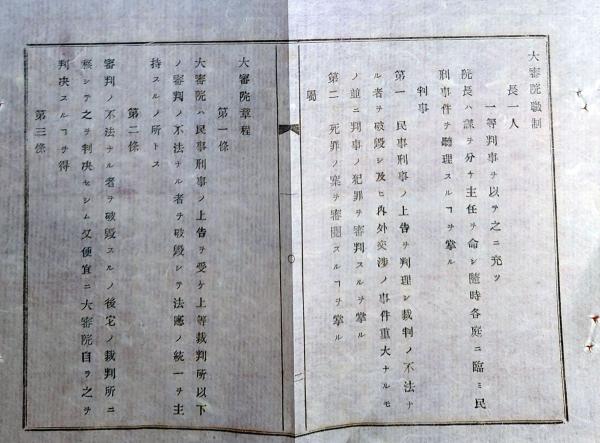 大審院職制
長一人
一等判事ヲ以テ之ニ充ツ
院長ハ課ヲ分ケ主任ヲ命シ随時各庭ニ臨ミ民
刑事件ヲ聽理スルヿヲ掌ル
判事
第一　民事刑事ノ上告ヲ判理シ裁判ノ不法ナ
ル者ヲ破毀シ及ヒ内外交渉ノ事件重大ナルモ
ノ並ニ判事ノ犯罪ヲ審判スルヲ掌ル
第二　死罪ノ案ヲ審閲スルヿヲ掌ル
属
大審院章程
第一條
大審院ハ民事刑事ノ上告ヲ受ケ上等裁判所以下
ノ審判ノ不法ナル者ヲ破毀シテ法憲ノ統一ヲ主
持スルノ所トス
第二條
審判ノ不法ナル者ヲ破毀スルノ後宅ノ裁判所ニ
移シテ之ヲ判决セシム又便宜ニ大審院自ラ之ヲ
判决スルヿヲ得
第三條